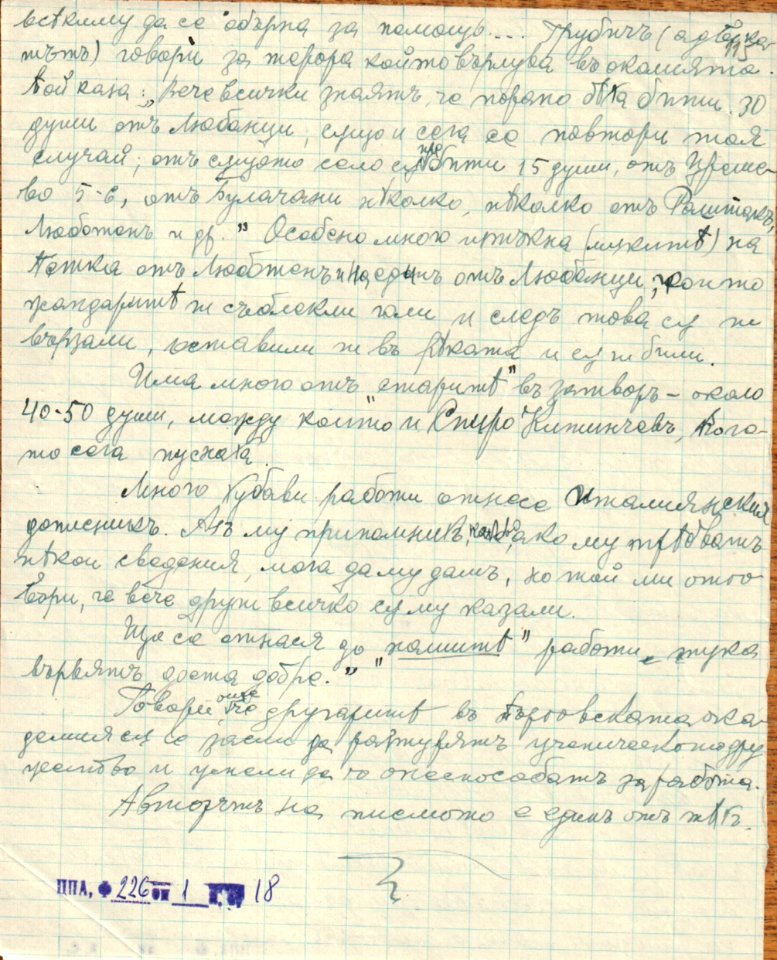 всѣкиму да се обърна за помощь.... Трубичъ (адвока-
115
тътъ) говори за терора който върлува въ околията.
Той каза: „Вече всички знаятъ, че порано бѣха бити 30
души отъ Любанци, сѫщо и сега се повтори тоя
случай; отъ сѫщото село сѫ пребити 15 души, отъ Цреше-
во 5-6, отъ Булачани нѣколко, нѣколко отъ Раштакъ,
Люботенъ и др." Особено много (мѫкитѣ) на
отъ Люботенъ и на единъ отъ Любанци, които
жандармитѣ ги съблекли голи и следъ това сѫ ги
вързали, оставили ги въ рѣката и сѫ ги били.
Има много отъ старитѣ" въ затворъ – около
40-50 души, между които и Спиро Китинчевъ, кого-
то сега пуснаха.
Много хубави работи отнесе италиянския
дописникъ. Азъ му припомнихъ, ако му трѣбватъ
нѣкои сведения, мога да му дамъ, но той ми отго
вори, че вече други всичко сѫ му казали.
Що се отнася до „нашитѣ" работи „тука
вървятъ доста добре."
Говори още, че другаритѣ въ Търговската ака-
демия сѫ се заели да разтурятъ ученическото дру
жество и успели да го онеспособатъ за работа.
Авторътъ на писмото е единъ отъ тѣхъ.
ППА, Ф 226 оп 1 18